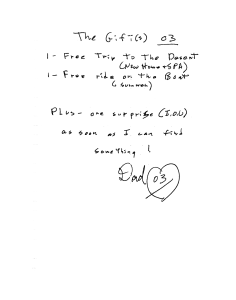 The Gift(s) 03
1 - Free Trip to The Desert
(New Home + SPA)
1 - Free ride on the Boat
(summer)
Plus - one surprise (I.O.U)
as soon as I can find
something !
Dad 03